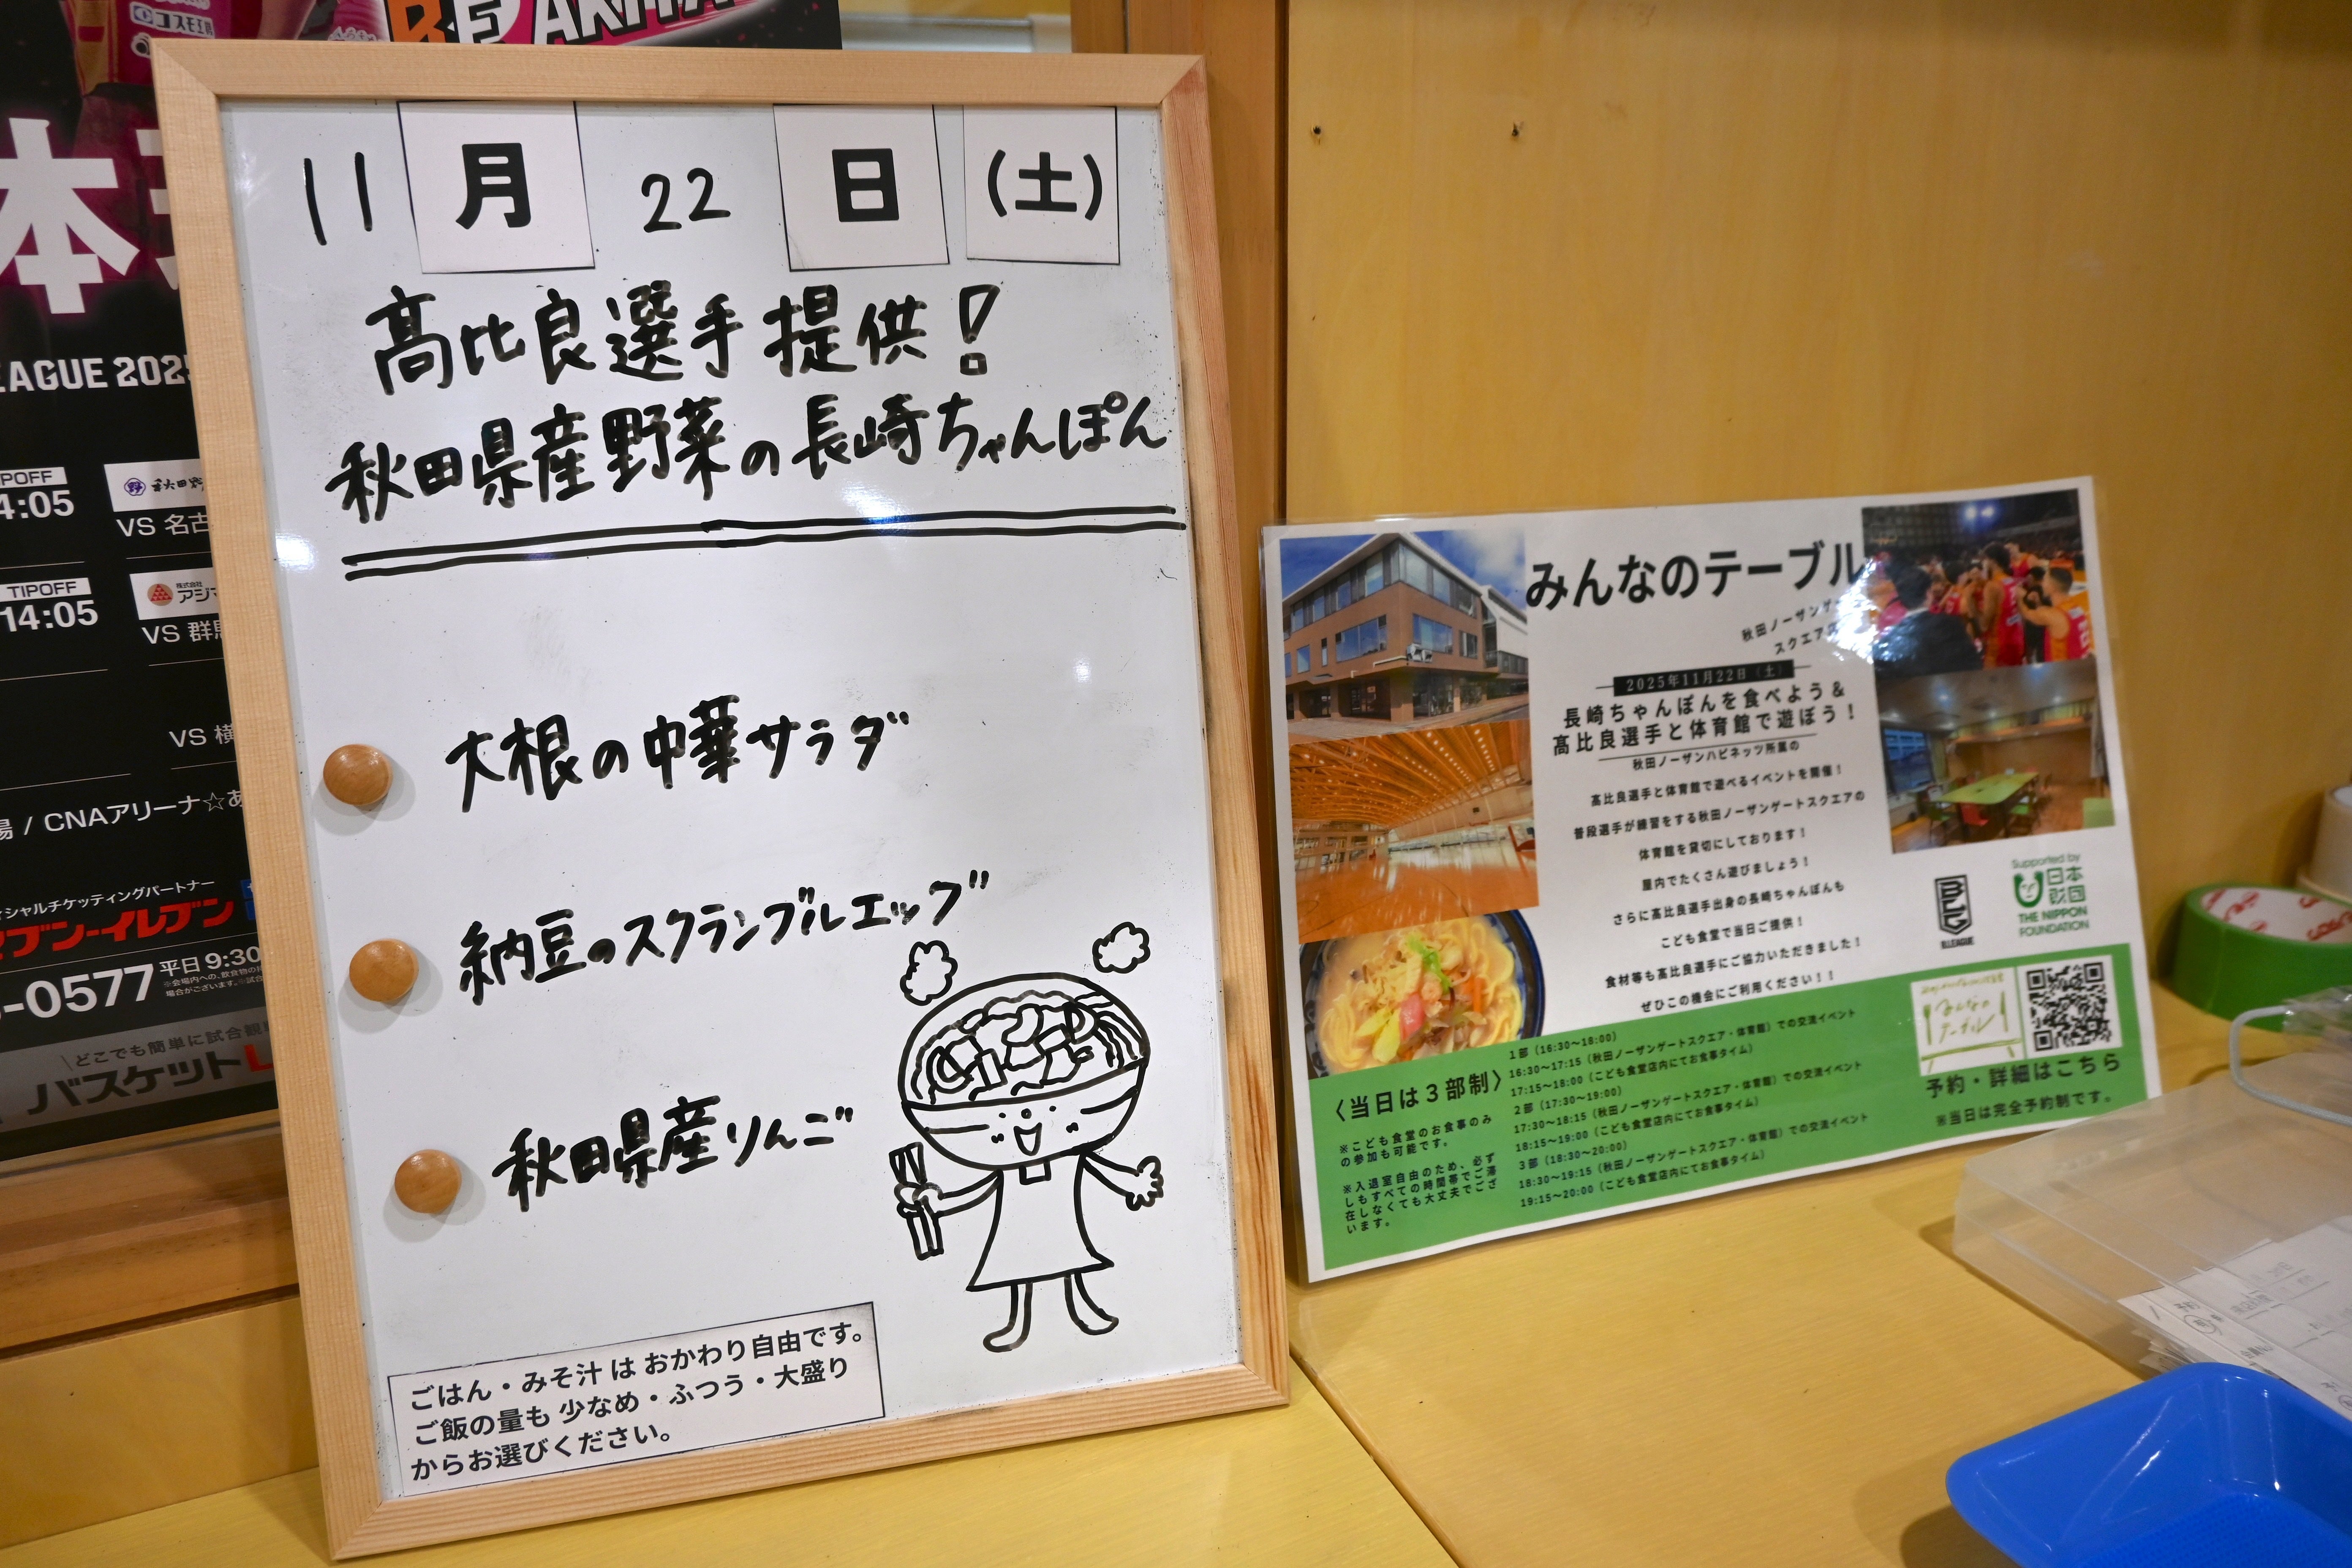 コスモ工
BE AKITA
本
EAGUE 2025
TIPOFF
14:05
VS 名古
TIPOFF
14:05
株式会社
アジマ
VS 群馬
VS 横
場 / CNAアリーナ☆あ
ィシャルチケッティングパートナー
ブン-イレブン
-0577 平日 9:30
どこでも簡単に試合観
バスケットL
11月22日(土)
髙比良選手提供!
秋田県産野菜の長崎ちゃんぽん
大根の中華サラダ
納豆のスクランブルエッグ
秋田県産りんご
ごはん・みそ汁 は おかわり自由です。
ご飯の量も 少なめ・ふつう・大盛り
からお選びください。
みんなのテーブル
秋田ノーザンゲー
スクエア
2025年11月22日(土)
長崎ちゃんぽんを食べよう&
髙比良選手と体育館で遊ぼう!
秋田ノーザンハピネッツ所属の
髙比良選手と体育館で遊べるイベントを開催!
普段選手が練習をする秋田ノーザンゲートスクエアの
体育館を貸切にしております!
屋内でたくさん遊びましょう!
さらに髙比良選手出身の長崎ちゃんぽんも
こども食堂で当日ご提供!
食材等も髙比良選手にご協力いただきました!
ぜひこの機会にご利用ください!!
B.LEAGUE
Supported by
日本
財団
THE NIPPON
FOUNDATION
〈当日は3部制〉
※こども食堂のお食事のみ
の参加も可能です。
※入退室自由のため、必ず
しもすべての時間帯でご滞
在しなくても大丈夫でござ
います。
1部(16:30~18:00)
16:30~17:15(秋田ノーザンゲートスクエア・体育館)での交流イベント
17:15~18:00(こども食堂店内にてお食事タイム)
2部(17:30~19:00)
17:30~18:15(秋田ノーザンゲートスクエア・体育館)での交流イベント
18:15~19:00(こども食堂店内にてお食事タイム)
3部(18:30~20:00)
18:30~19:15(秋田ノーザンゲートスクエア・体育館)での交流イベント
19:15~20:00(こども食堂店内にてお食事タイム)
みんなの
テーブル
予約・詳細はこちら
※当日は完全予約制です。